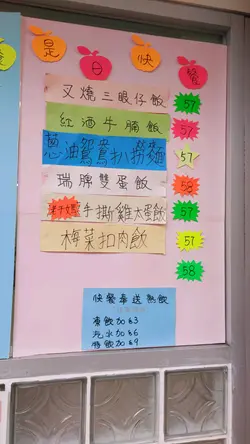 是日快餐
叉燒三眼仔飯 57
紅酒牛腩飯 57
葱油鴛鴦扒撈麵 57
瑞脾雙蛋飯 58
手撕雞太蛋飯 57
梅菜扣肉飯 57
58
快餐奉送熱飲
凍飲加$3
汽水加$6
特飲加$9